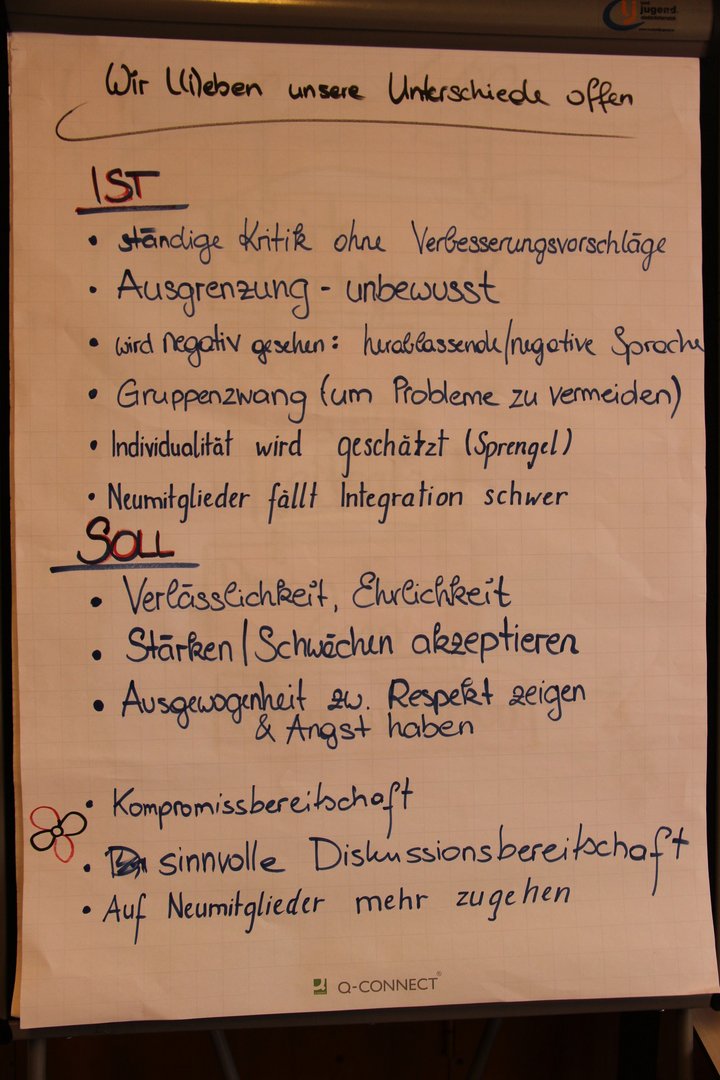 jugend.
Wir l(i)eben unsere Unterschiede offen
IST
• ständige Kritik ohne Verbesserungsvorschläge
• Ausgrenzung - unbewusst
• wird negativ gesehen: herablassende/negative Sprache
• Gruppenzwang (um Probleme zu vermeiden)
• Individualität wird geschätzt (Sprengel)
• Neumitglieder fällt Integration schwer
SOLL
• Verlässlichkeit, Ehrlichkeit
• Stärken/Schwächen akzeptieren
• Ausgewogenheit zw. Respekt zeigen
& Angst haben
• Kompromissbereitschaft
• sinnvolle Diskussionsbereitschaft
• Auf Neumitglieder mehr zugehen
Q-CONNECT®